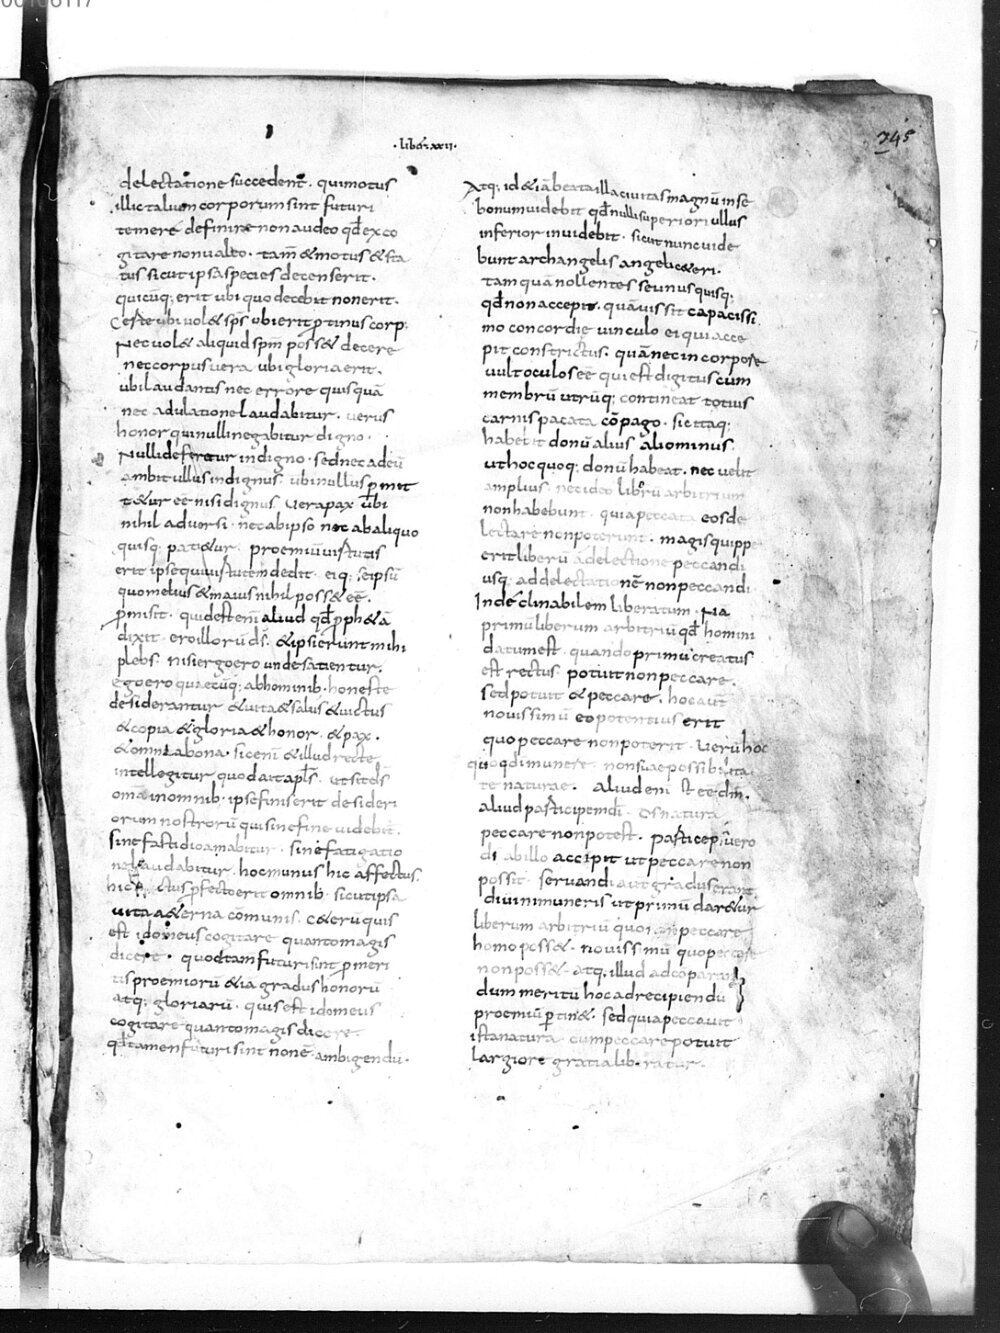 ·liber xxii·
345
delectatione succedent· qui motus
illic talium corporum sint futuri
temere definire non audeo qđ exco
gitare non ualeo· tam̄ & motus & sta
tus sicut ipsa species decens erit·
quicūq; erit ubi quod ecebit non erit·
Certe ubi uol& sp̄s ubi erit ꝓtinus corp;
Nec uol& aliquid sp̄m poss& decere
nec corpus uera ubi gloria erit·
ubi laudantis nec errore quisquā
nec adulatione laudabitur· uerus
honor qui nulli negabitur digno·
Nulli deferetur indigno· sed nec ad eū
ambit ullus indignus· ubi nullus ꝑmit
t&ur eē nisi dignus Uera pax ubi
nihil aduersi· nec ab ipso nec ab aliquo
quisq; pati&ur· proemiū uirtutis
erit ipse qui uirtutem dedit· eiq; seipsū
quo melius & maius nihil poss& eē·
ꝓmisit· quid est enī aliud qđ ꝓ ꝓph&ā
dixit· ero illorū dš· & ipsi erunt mihi
plebs· nisi ergo ero unde satientur·
ego ero quaecūq; ab hominib· honeste
desiderantur & uita & salus & uictus
& copia & gloria & honor & pax·
& omnia bona· sic enī & illud recte
intellegitur quod ait apłs· ut sit dš
omīa in omnib· ipse finis erit desideri
orum nostrorū qui sine fine uidebit·
sine fastidio amabitur· sine fatigatio
ne laudabitur· hoc munus hic affectus·
hic actus ꝓfecto erit omnib· sicut ipsa
uita aeterna comunis· Ceterū quis
est idoneus cogitare quanto magis
dicere· quod tam futuri sint ꝓ meri
tis proemiorū & iā gradus honorū
atq; gloriarū· quis est idoneus
cogitare quanto magis dicere·
qđ tamen futuri sint non ē ambigendū·
Atq; id & iā beata illa ciuitas magnū in se
bonum uidebit qđ nulli superiori ullus
inferior inuidebit· sicut nunc uide
bunt archangelis angeli c&eri·
tam quā nollent esse unus quisq;
qđ non accepit· quāuis sit capacissi
mo concordię uinculo ei qui acce
pit constrictus· quā nec in corpore
uult oculos eē qui est digitus cum
membrū utrūq; contineat totius
carnis pacata cōpago· sic itaq;
habebit donū alius alio minus·
ut hoc quoq; donū habeat· nec uelit
amplius· nec ideo liberū arbitrium
non habebunt· quia peccata eos de
lectare non poterunt· magis quippe
erit liberū a delectione peccandi
usq; ad delectationē non peccandi
Indeclinabilem liberatum· Na
primū liberum arbitriū qđ homini
datum est· quando primū creatus
est rectus· potuit non peccare·
sed potuit & peccare· hoc aut̄
nouissimū eo potentius erit
quo peccare non poterit· Uerū hoc
quoq; di munere non suae possibilita
te naturae· Aliud enī est eē dm̄·
aliud participem dī· Ds natura
peccare non potest· particeps uero
di ab illo accipit ut peccare non
possit· seruandi aut gradus erant
diuini muneris ut primū dar&ur
liberum arbitriū quo non peccare
homo poss&· nouissimū quo peccare
non poss&· atq; illud ad cōparan
dum meritū hoc ad recipiendū
proemiū ꝑtin&· sed quia peccauit
ista natura cum peccare potuit
largiore gratia liberatur·